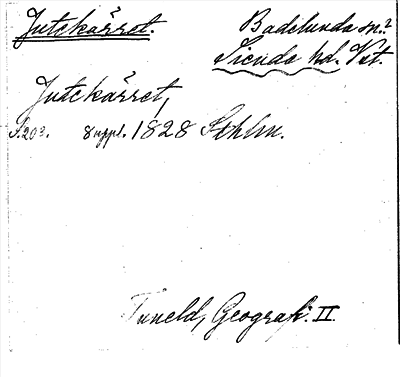 Jutekärret.
Badelunda sn.?
Siende hd. Vst.
Jutekärret,
S. 203. 8 uppl. 1828 Sthlm.
Tuneld, Geografi. II.